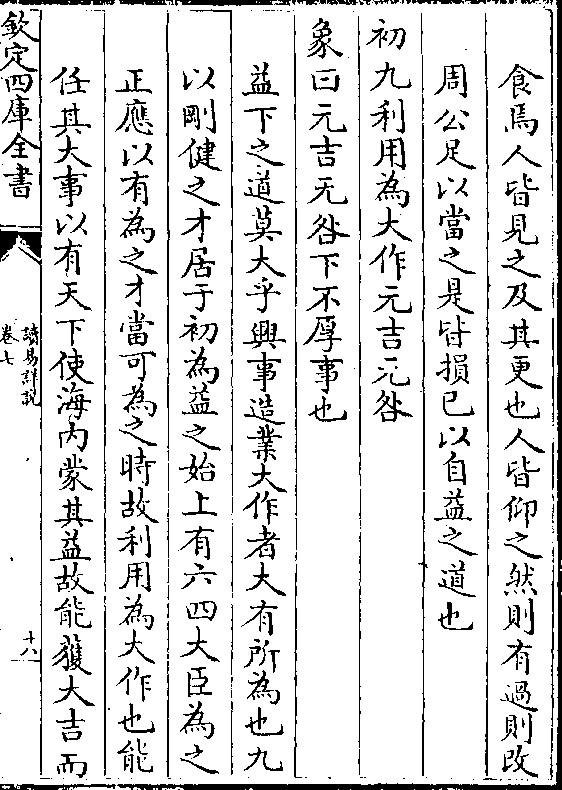 食焉人皆見之及其更也人皆仰之然則有過則改
周公足以當之是皆損已以自益之道也
初九利用為大作元吉无咎
象曰元吉无咎下不厚事也
益下之道莫大乎興事造業大作者大有所為也九
以剛健之才居于初為益之始上有六四大臣為之
正應以有為之才當可為之時故利用為大作也能
任其大事以有天下使海内蒙其益故能獲大吉而
欽定四庫全書
讀易詳說
卷七
十八